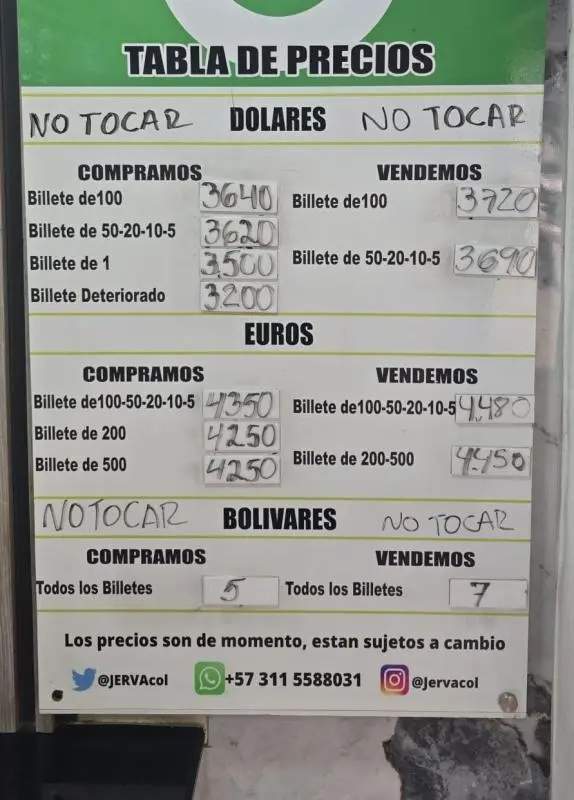 TABLA DE PRECIOS
NO TOCAR DOLARES NO TOCAR
COMPRAMOS VENDEMOS
Billete de100 3640 Billete de100 3720
Billete de 50-20-10-5 3620 Billete de 50-20-10-5 3690
Billete de 1 3,500
Billete Deteriorado 3200
EUROS
COMPRAMOS VENDEMOS
Billete de100-50-20-10-5 4350 Billete de100-50-20-10-5 4,480
Billete de 200 4250
Billete de 500 4250 Billete de 200-500 4.450
NO TOCAR BOLIVARES NO TOCAR
COMPRAMOS VENDEMOS
Todos los Billetes 5 Todos los Billetes 7
Los precios son de momento, estan sujetos a cambio
@JERVAcol +57 311 5588031 @Jervacol